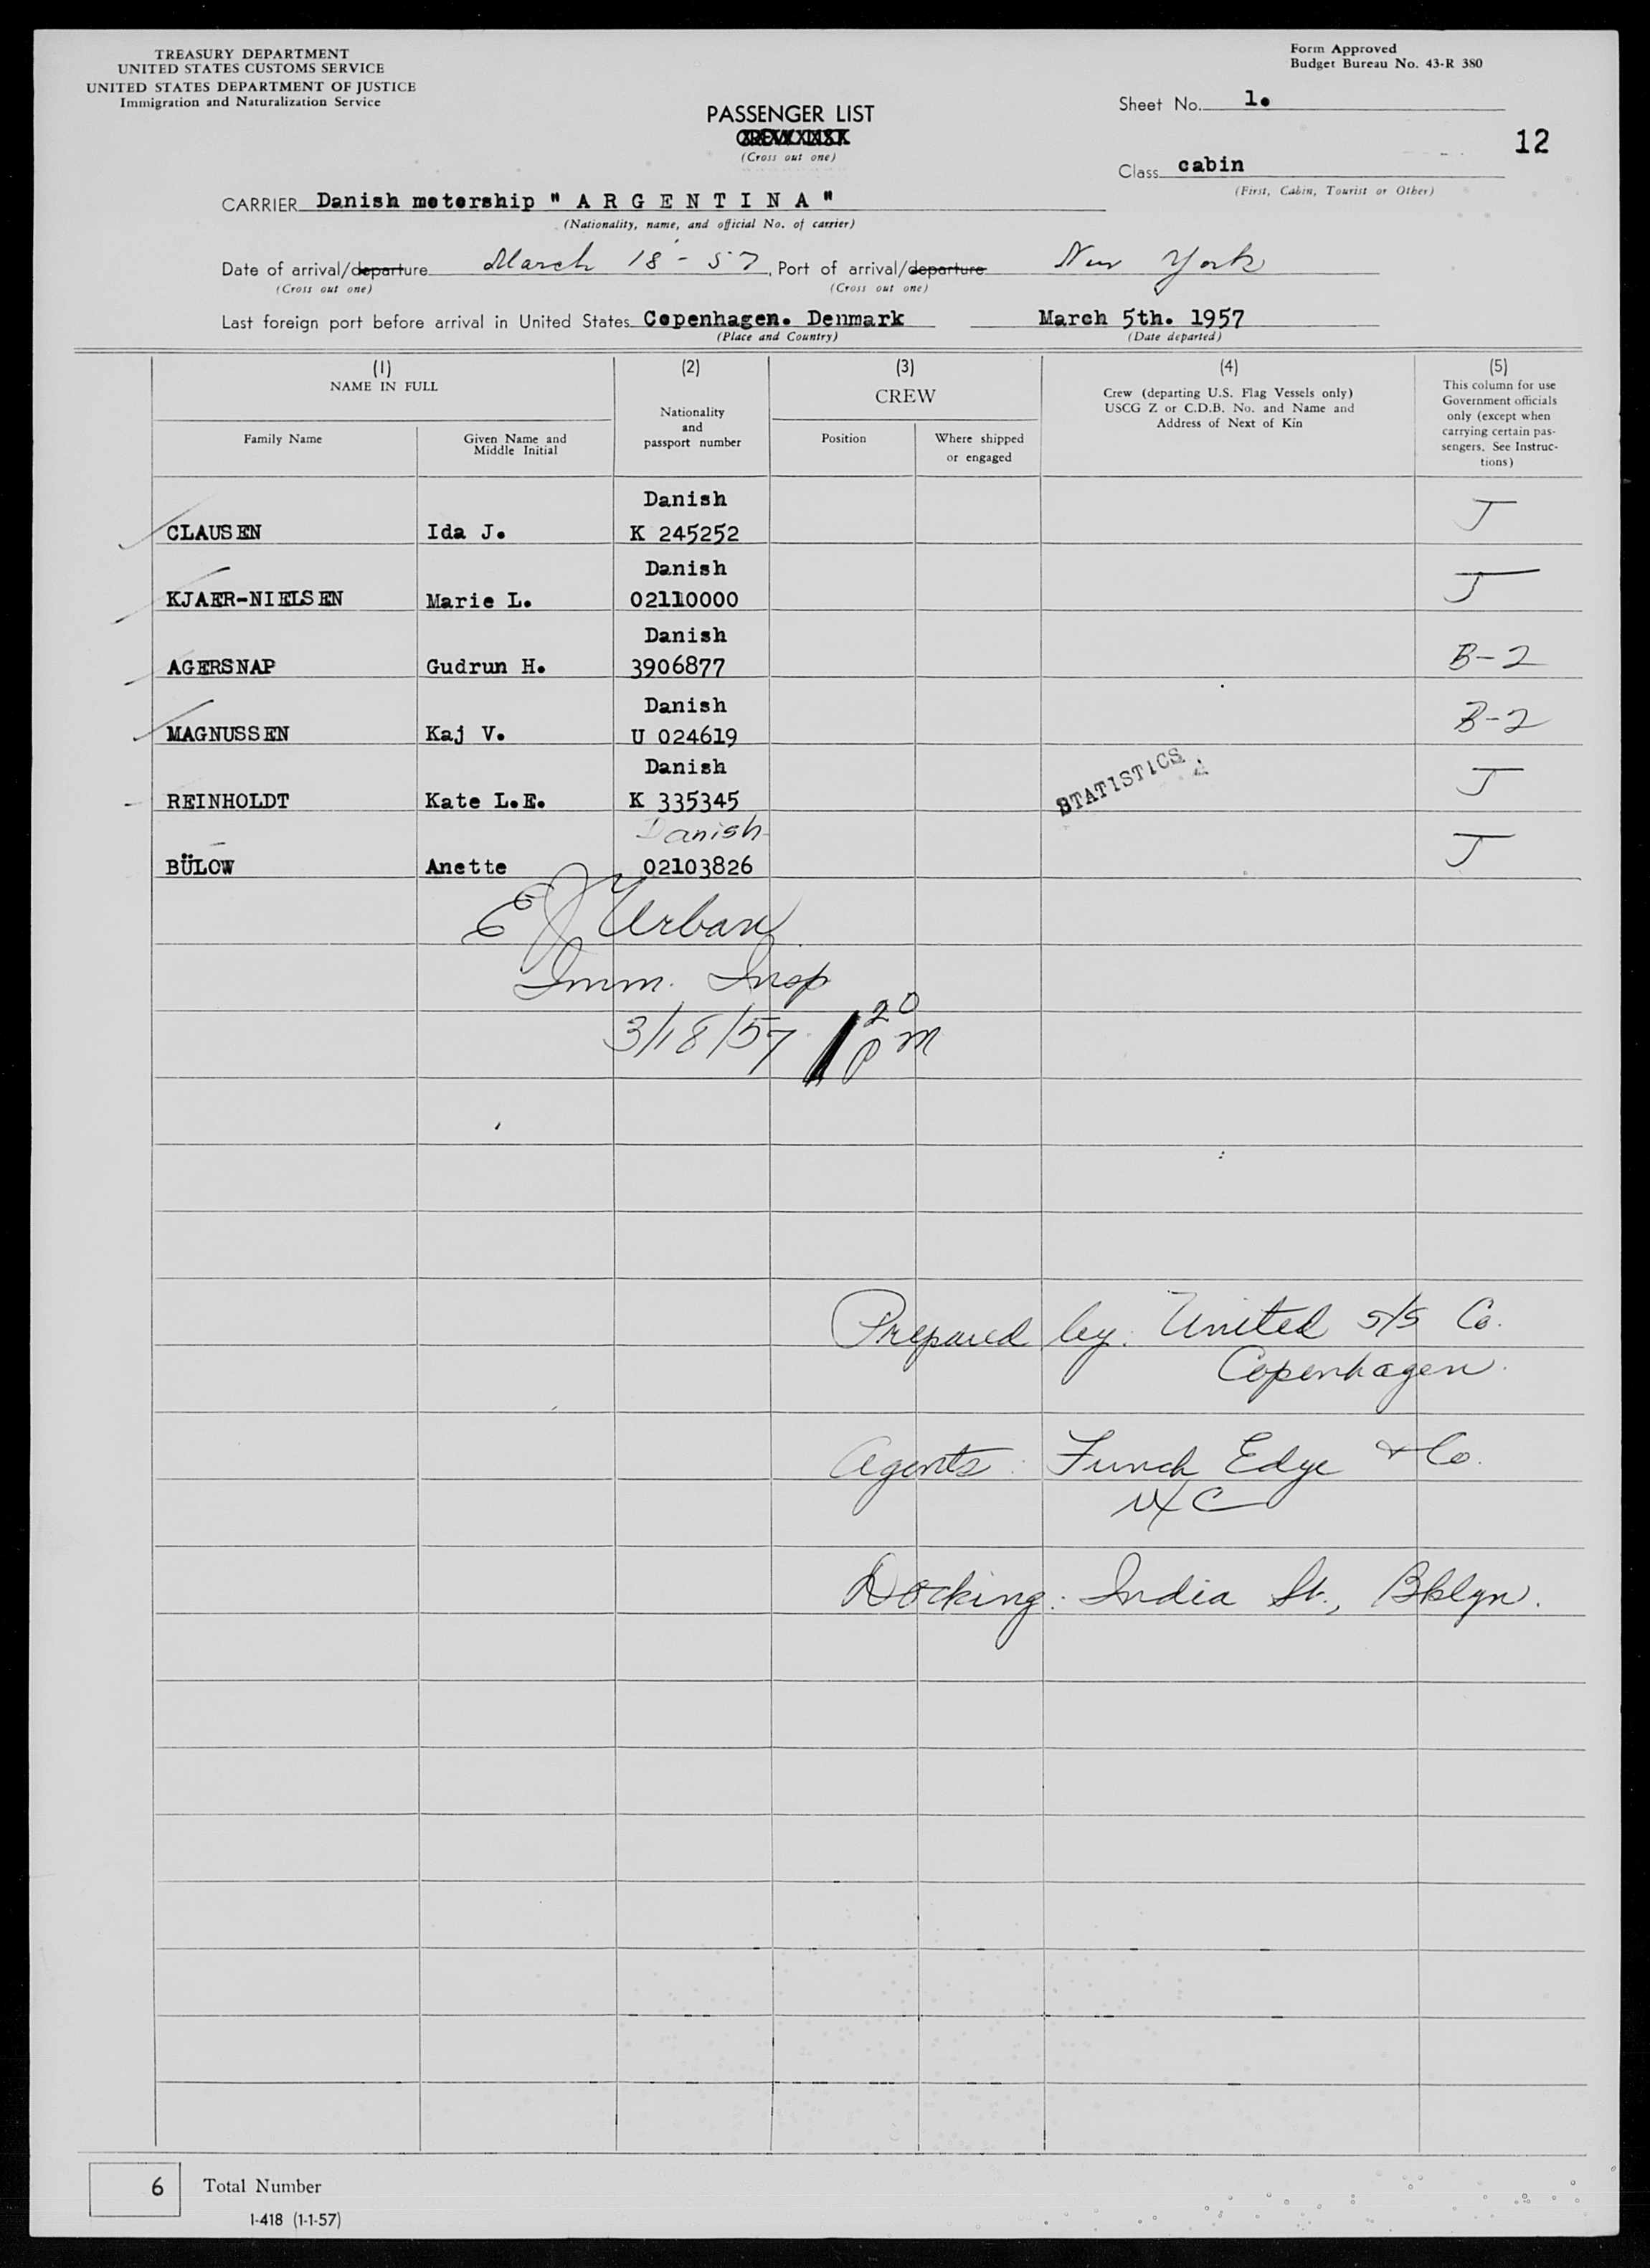 TREASURY DEPARTMENT
UNITED STATES CUSTOMS SERVICE
UNITED STATES DEPARTMENT OF JUSTICE
Immigration and Naturalization Service
Form Approved
Budget Bureau No. 43-R 380
PASSENGER LIST
CREW LIST
(Cross out one)
Sheet No. 1.
12
Class cabin
(First, Cabin, Tourist or Other)
CARRIER Danish motorship " A R G E N T I N A "
(Nationality, name, and official No. of carrier)
Date of arrival/departure March 18 - 57, Port of arrival/departure New York
(Cross out one) (Cross out one)
Last foreign port before arrival in United States Copenhagen. Denmark March 5th. 1957
(Place and Country) (Date departed)
(1) (2) (3) (4) (5)
NAME IN FULL
Family Name
Given Name and
Middle Initial
Nationality
and
passport number
CREW
Position
Where shipped
or engaged
Crew (departing U.S. Flag Vessels only)
USCG Z or C.D.B. No. and Name and
Address of Next of Kin
This column for use
Government officials
only (except when
carrying certain pas-
sengers. See Instruc-
tions)
Danish
CLAUSEN Ida J. K 245252 J
Danish
KJAER-NIELSEN Marie L. 02110000 J
Danish
AGERSNAP Gudrun H. 3906877 B-2
Danish
MAGNUSSEN Kaj V. U 024619 B-2
Danish
REINHOLDT Kate L.E. K 335345 J
STATISTICS
Danish
BÜLOW Anette 02103826 J
E J Urban
Imm. Insp
3/18/57 1 20 PM
Prepared by: United S/S Co.
Copenhagen.
Agents: Funch Edye & Co.
NYC
Docking: India St., Bklyn.
6 Total Number
I-418 (1-1-57)